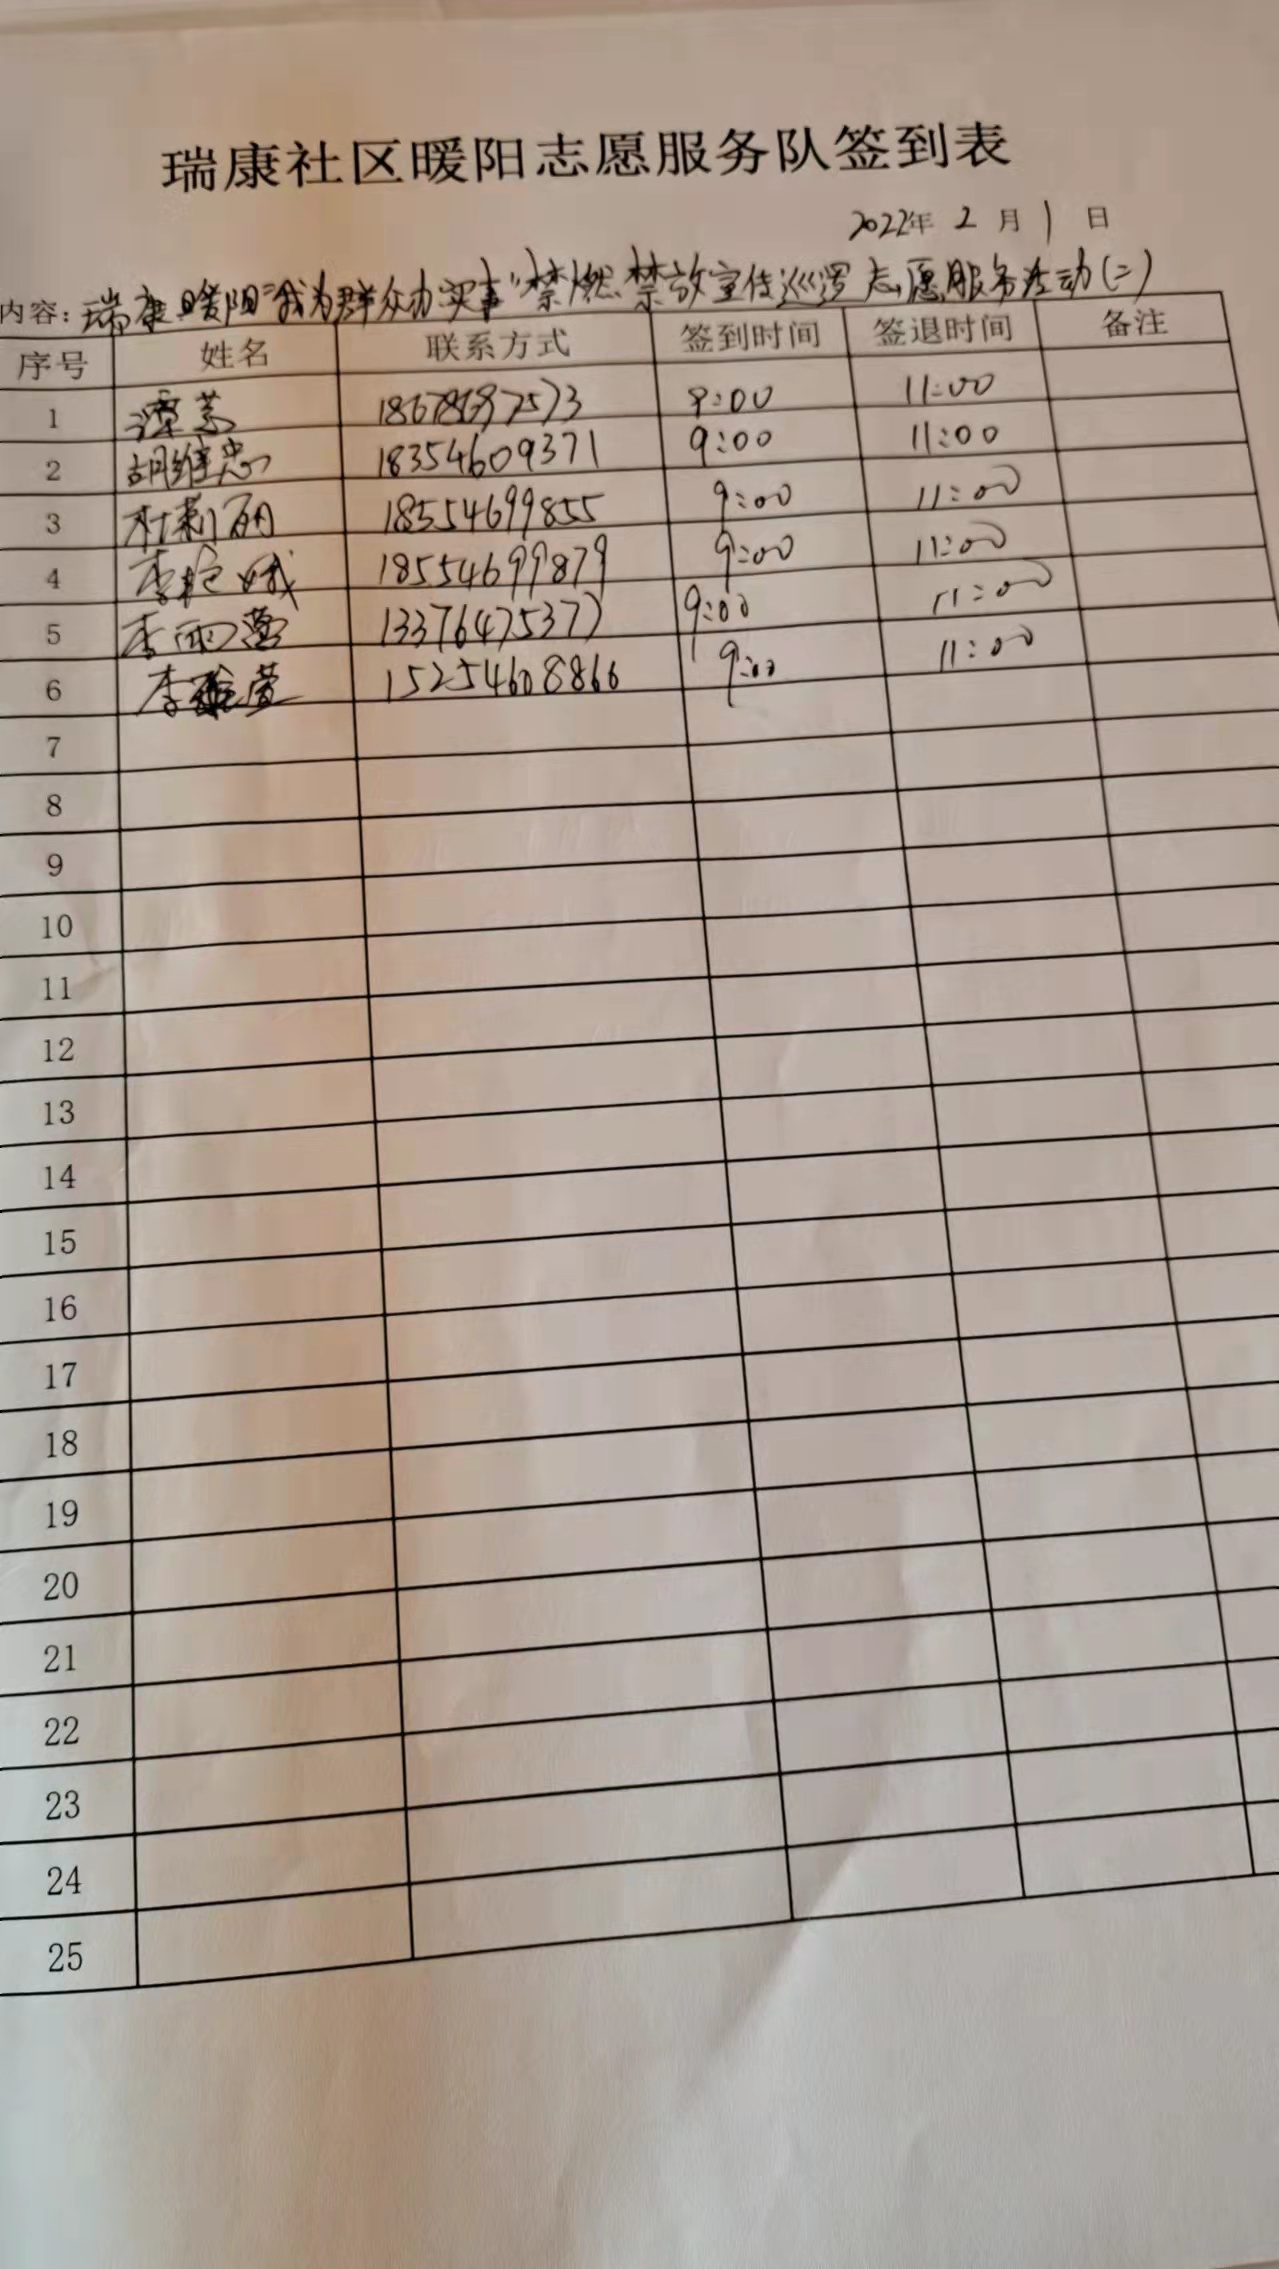 瑞康社区暖阳志愿服务队签到表
2022年 2 月 1 日
内容：瑞康暖阳"我为群众办实事"禁燃禁放宣传巡逻志愿服务活动(二)
序号 姓名 联系方式 签到时间 签退时间 备注
1 9:00 11:00
2 胡维忠 18354609371 9:00 11:00
3 杜莉丽 18554699855 9:00 11:00
4 李艳娥 18554699879 9:00 11:00
5 李雨 13376475377 9:00 11:00
6 李 15254608866 9:00 11:00
7
8
9
10
11
12
13
14
15
16
17
18
19
20
21
22
23
24
25